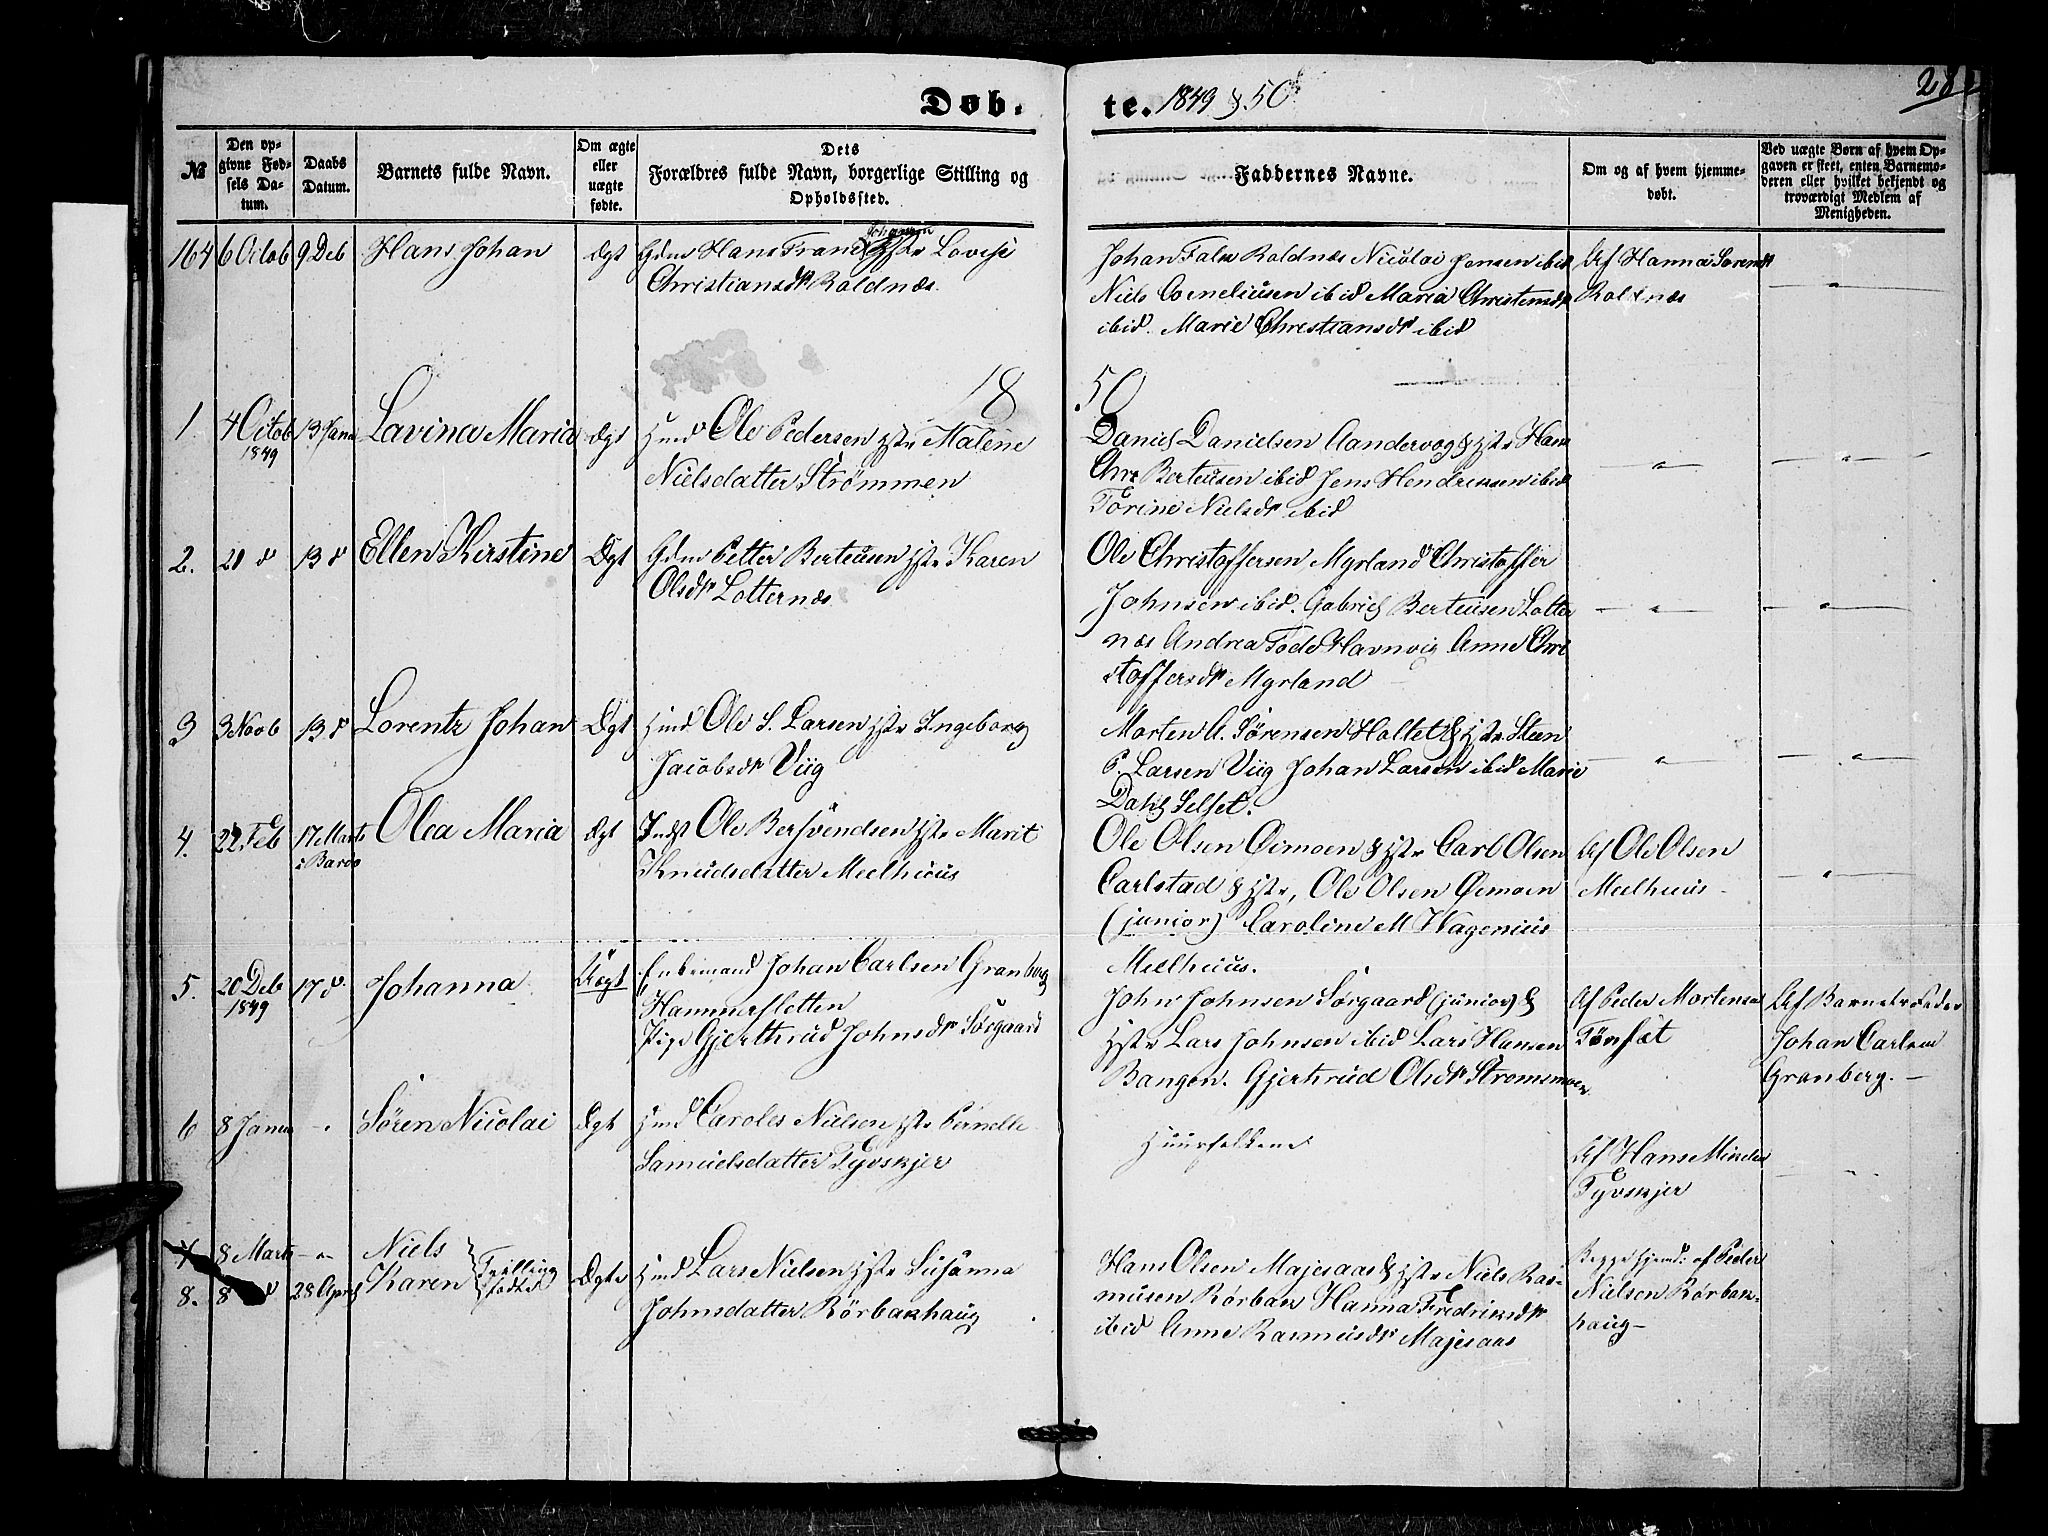 Døb. te. 1849 & 50
28
№
Den opgivne Fødsels Datum.
Daabs Datum.
Barnets fulde Navn.
Om ægte eller uægte fødte.
Dets Forældres fulde Navn, borgerlige Stilling og Opholdssted.
Faddernes Navne.
Om og af hvem hjemmedøbt.
Ved uægte Børn af hvem Opgaven er skeet, enten Barnemoderen eller hvilket bekjendt og troværdigt Medlem af Menigheden.
164 6 Octob 9 Deb Hans Johan Ægt Gdm Hans Frand Johansen Hstr Lovise
Christiansdr Roldnæs.
Johan Falk Roldnæs Nicolai Jensen ibid
Niels Corneliusen ibid Maria Christensdr
ibid. Marie Christiansdr ibid
Af Hanna Sorensdr
Roldnæs
18 50
1. 4 Octob 1849 13 Janu Lavina Maria Ægt Hmd Ole Pedersen Hstr Malene
Nielsdatter Strømmen
Daniel Danielsen Aandervag & Hstr Hans
Chr Berteusen ibid Jens Hendriksen ibid
Torine Nielsdr ibid
2. 21 d 13 d Ellen Kirstine Ægt Gdm Petter Berteusen Hstr Karen
Olsdr Lotternæs
Ole Christoffersen Myrland Christoffer
Johnsen ibid. Gabriel Berteusen Lotter
næs Andrea Todd Havnvig Anne Chri
stoffersdr Myrland
3 3 Novb 13 d Lorentz Johan Ægt Hmd Ole S. Larsen Hstr Ingeborg
Jacobsdr Viig
Morten A. Sørensen Holtet & Hstr Steen
P. Larsen Viig Johan Larsen ibid Marie
Dahl Selset.
4. 22 Feb 17 Marts i Bardo Olea Maria Ægt Indst Ole Bersvendsen Hstr Marit
Knudsdatter Meelhuus
Ole Olsen Øimoen & Hstr Carl Olsen
Carlstad & Hstr, Ole Olsen Øimoen
(junior) Caroline M Hagenius
Meelhuus.
Af Ole Olsen
Meelhuus
5. 20 Deb 1849 17 d. Johanna Uægt Enkemand Johan Carlsen Granberg
Hammersletten
Pige Gjerthrud Johnsdr Sørgaard
John Johnsen Sørgaard (junior) &
Hstr Lars Johnsen ibid Lars Hansen
Bangen. Gjerthrud Olsdr Strømsmoen
Af Peder Mortensen
Tønsæt
Af Barnets Fader
Johan Carlsen
Granberg.
6 8 Janua Søren Nicolai Ægt Hmd Carolus Nielsen Hstr Pernelle
Samuelsdatter Tyvskjer
Huusfolkene
Af Hans Mikelsen
Tyvskjer
7 8 Marts Niels
8. 8 d 28 April Karen Tvilling fødte Ægte Hmd Lars Nielsen Hstr Susanna
Johnsdatter Rörbakhaug
Hans Olsen Majesaas & Hstr Niels Ras-
musen Rörbak Hanna Fredriksdr
ibid Anne Rasmusdr Majesaas
Begge hjemd: af Peder
Nielsen Rörbak-
haug